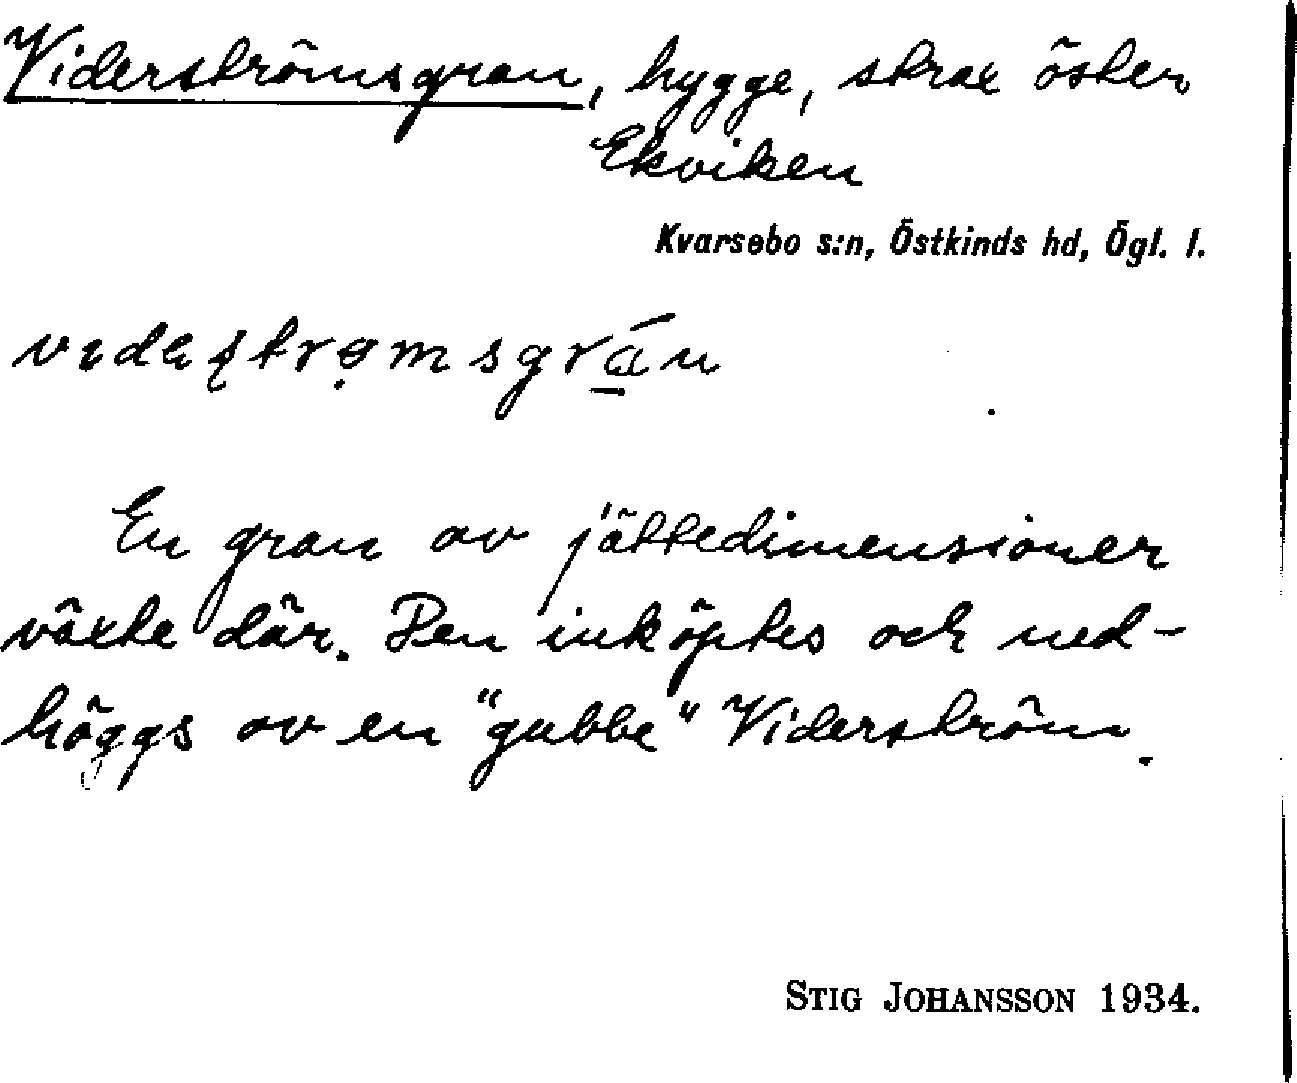 Viderströmsgran, hygge, strax öster
Ekviken
Kvarsebo s:n, Östkinds hd, Ögl. l.
En gran av jättedimensioner
växte där. Den inköptes och ned-
höggs av en "gubbe" Viderström.
STIG JOHANSSON 1934.